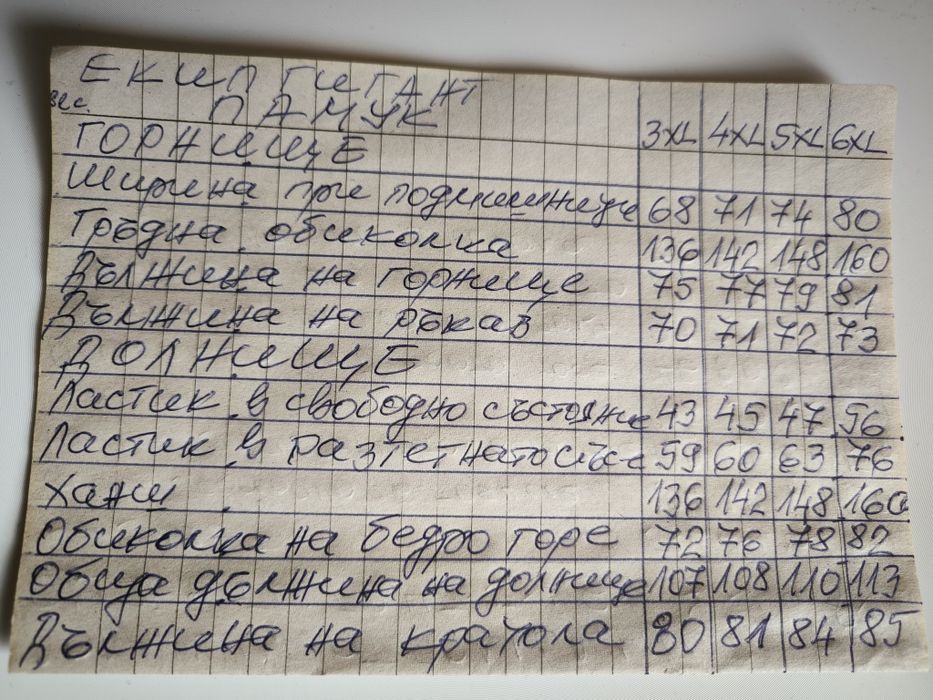 ЕКИП ГИГАНТ
вес. ПАМУК
ГОРНИЩЕ 3XL 4XL 5XL 6XL
Ширина при подмишнице 68 71 74 80
Гръдна обиколка 136 142 148 160
Дължина на горнище 75 77 79 81
Дължина на ръкав 70 71 72 73
ДОЛНИЩЕ
Ластик в свободно състояние 43 45 47 56
Ластик в разтегнато със-е 59 60 63 76
Ханш 136 142 148 160
Обиколка на бедро горе 72 76 78 82
Обща дължина на долнище 107 108 110 113
Дължина на крачола 80 81 84 85